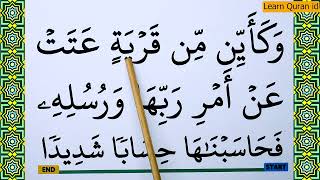 Learn Quran id
وَكَأَيِّن مِّن قَرْيَةٍ عَتَتْ
عَنْ أَمْرِ رَبِّهَا وَرُسُلِهِۦ
فَحَاسَبْنَٰهَا حِسَابًا شَدِيدًا
END
START